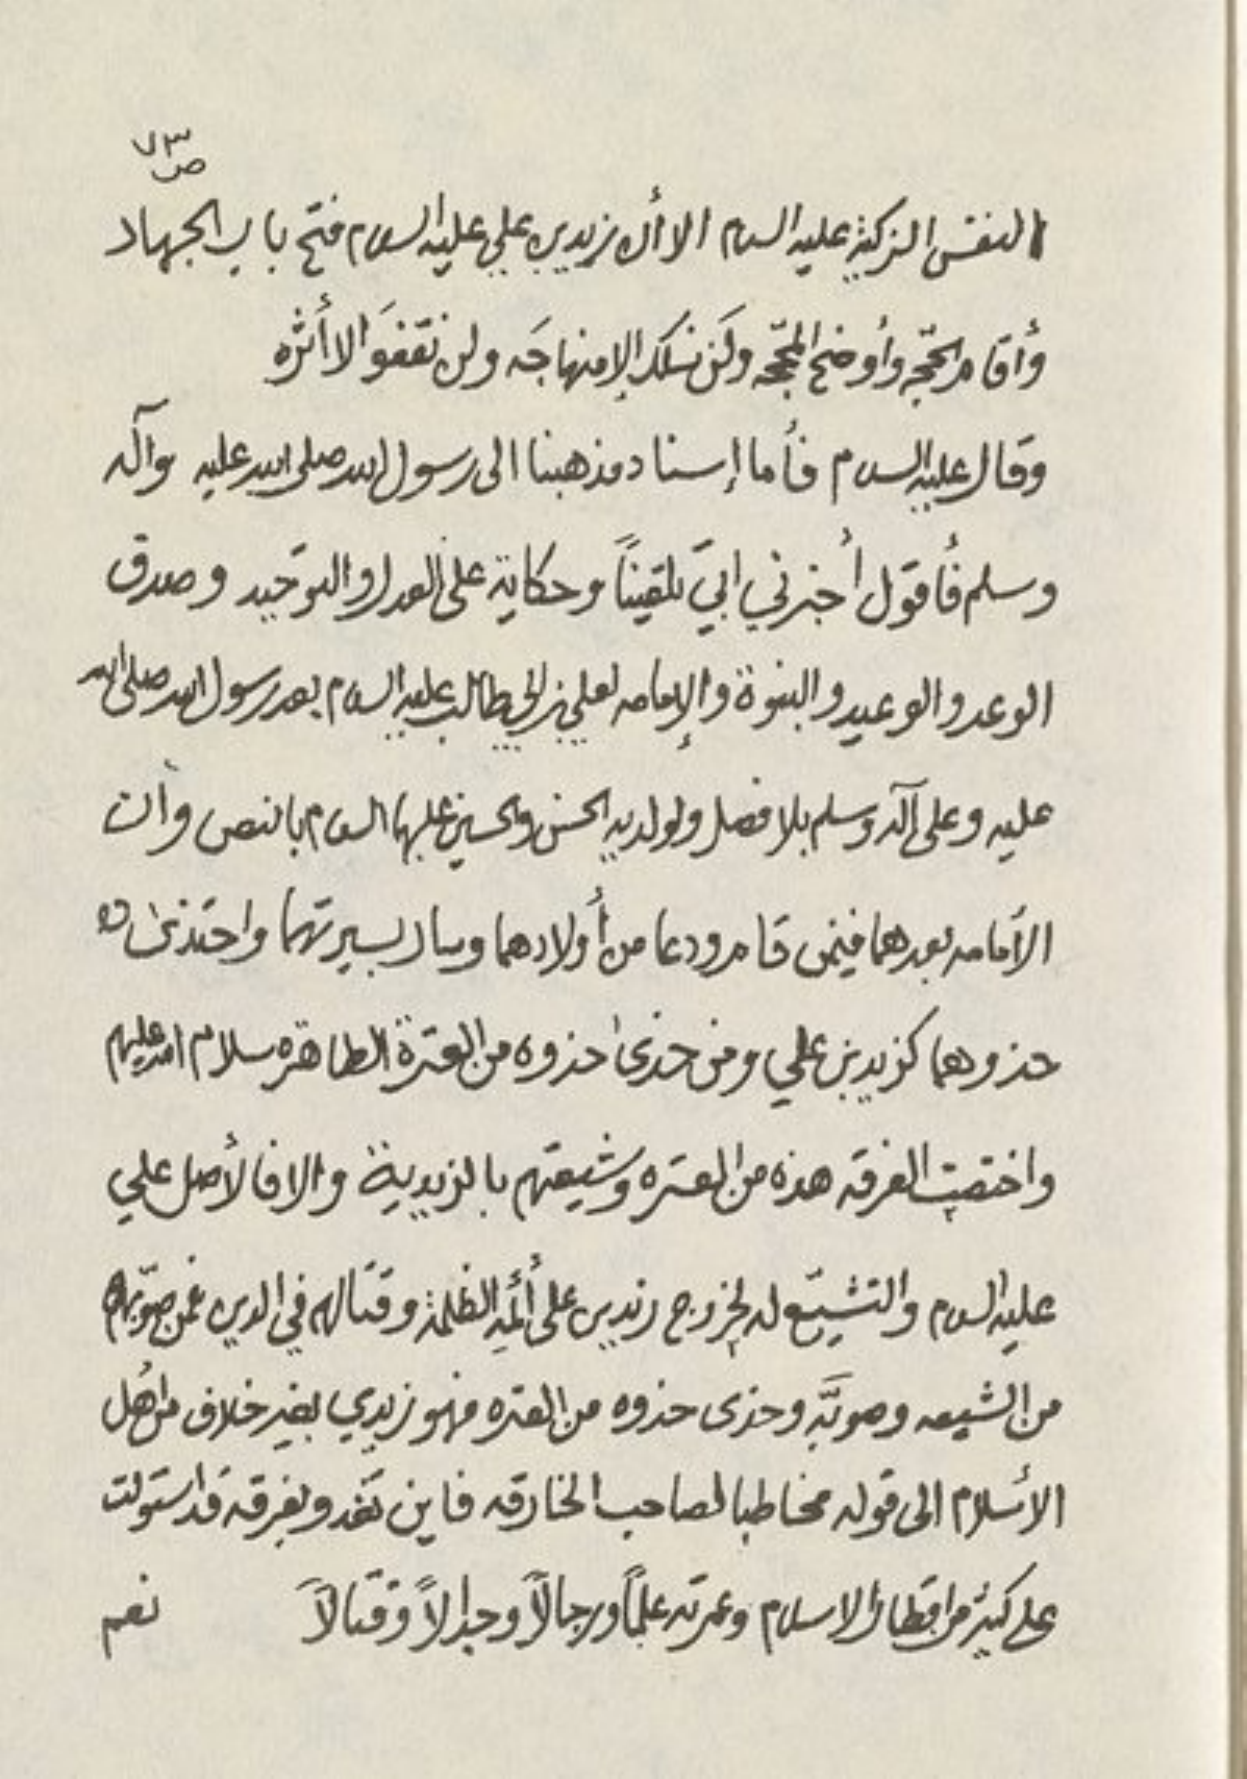 ص ٧٣
النفس الزكية عليه السلام الا أن زيد بن علي عليه السلام فتح باب الجهاد
وأقام الحجّه وأوضح المحجّه ولن نسلك إلا منهاجَه ولن نقفوَ الا أثره
وقال عليه السلام فأما إسناد مذهبنا الى رسول الله صلى الله عليه وآله
وسلم فأقول أخبرني ابيَ تلقيناً وحكاية على العدل والتوحيد وصدق
الوعد والوعيد والنبوة والإمامه لعلي بن ابي طالب عليه السلام بعد رسول الله صلى الله
عليه وعلى آله وسلم بلا فصل ولولديه الحسن والحسين عليهما السلام بالنص وأن
الأمامه بعدهما فيمن قام ودعا من أولادهما وسار بسيرتهما واحتذى
حذوهما كزيد بن علي ومن حذى حذوه من العترة الطاهره سلام الله عليهم
واختصت الفرقه هذه من العتره وشيعتهم بالزيدية والا فالأصل علي
عليه السلام والتشيّع له لخروج زيد بن على أئمة الظلمة وقتالهم في الدين فمن صوّبهم
من الشيعه وصوبّه وحذى حذوه من العتره فهو زيدي بغير خلاف من أهل
الأسلام الى قوله مخاطبا لصاحب الخارقه فاين تغدو بفرقه قد استولت
على كثير من اقطار الاسلام وعمرته علماً ورجالاً وجدالاً وقتالاً نعم